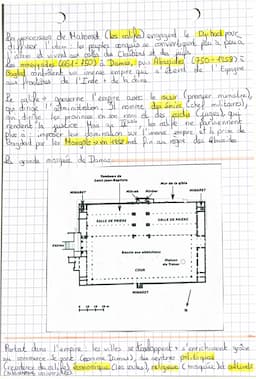 Les successeurs de Mahomet (les califes) engagent le Djihad pour
diffuser l'islam : les peuples conquis se convertissent peu à peu à
l'islam et
Les omeyyades (661-750) à Damas, puis Abbassides (750-1258) à
Bagdad contrôlent un immense empire qui s'étend de l'Espagne
aux frontières de l'Inde et de la Chine.
Le calife gouverne l'empire avec le vizir (premier ministre),
qui dirige l'administration. Il nomme des émirs (chef militaires),
qui dirige les provinces en son nom et des cadis (juges) qui
rendent la justice. Mais au les califes ne parviennent
plus à imposer leur domination sur l'immense empire et la prise de
Bagdad par les Mongols en 1258 met fin au règne des Abbassides
La grande mosquée de Damas
Tombeau de
Saint-Jean-Baptiste
Mur de la qibla
MINARET
Mihrab
Minbar
MINARET
SALLE DE PRIÈRE
SALLE DE PRIÈRE
Bassin aux ablutions
COUR
MINARET
N
Partout dans l'empire, les villes se développent et s'enrichissent grâce
au commerce. Ce sont (comme Damas), des centres politiques
(résidence du calife), économique (les souks), religieux (mosquée) et culturels